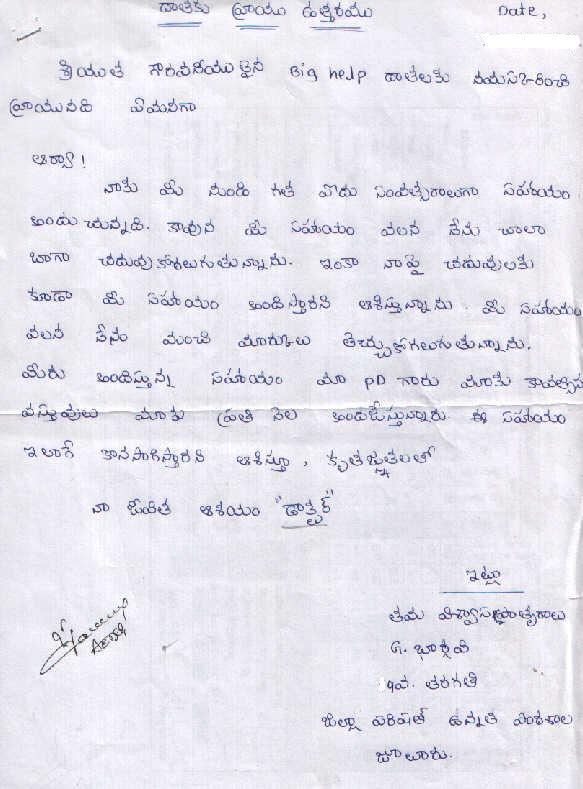 దాతకు వ్రాయు ఉత్తరము
Date,
శ్రీయుత గౌరవనీయులైన Big help దాతలకు నమస్కరించి
వ్రాయునది ఏమనగా
ఆర్యా!
నాకు మీ నుండి గత ఐదు సంవత్సరాలుగా సహాయం
అందుచున్నది. కావున మీ సహాయం వలన నేను చాలా
బాగా చదువుకోగలుగుతున్నాను. ఇంకా నా పై చదువులకు
కూడా మీ సహాయం అందిస్తారని ఆశిస్తున్నాను. మీ సహాయం
వలన నేను మంచి మార్కులు తెచ్చుకోగలుగుతున్నాను.
మీరు అందిస్తున్న సహాయం మా PD గారు మాకు కావల్సిన
వస్తువులు మాకు ప్రతి నెల అందజేస్తున్నారు. ఈ సహాయం
ఇలాగే కొనసాగిస్తారని ఆశిస్తూ, కృతజ్ఞతలతో
నా జీవిత ఆశయం "డాక్టర్"
ఇట్లు
తమ విశ్వాసపాత్రురాలు
G. భార్గవి
9వ. తరగతి
జిల్లా పరిషత్ ఉన్నత పాఠశాల
జూలూరు.